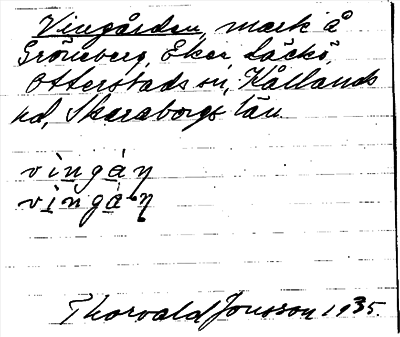 Vingården, mark å
Gröneberg, Eker, Läckö,
Otterstads sn, Kållands
hd, Skaraborgs län.
vìngán
vìngá n
Thorvald Jonsson 1935.